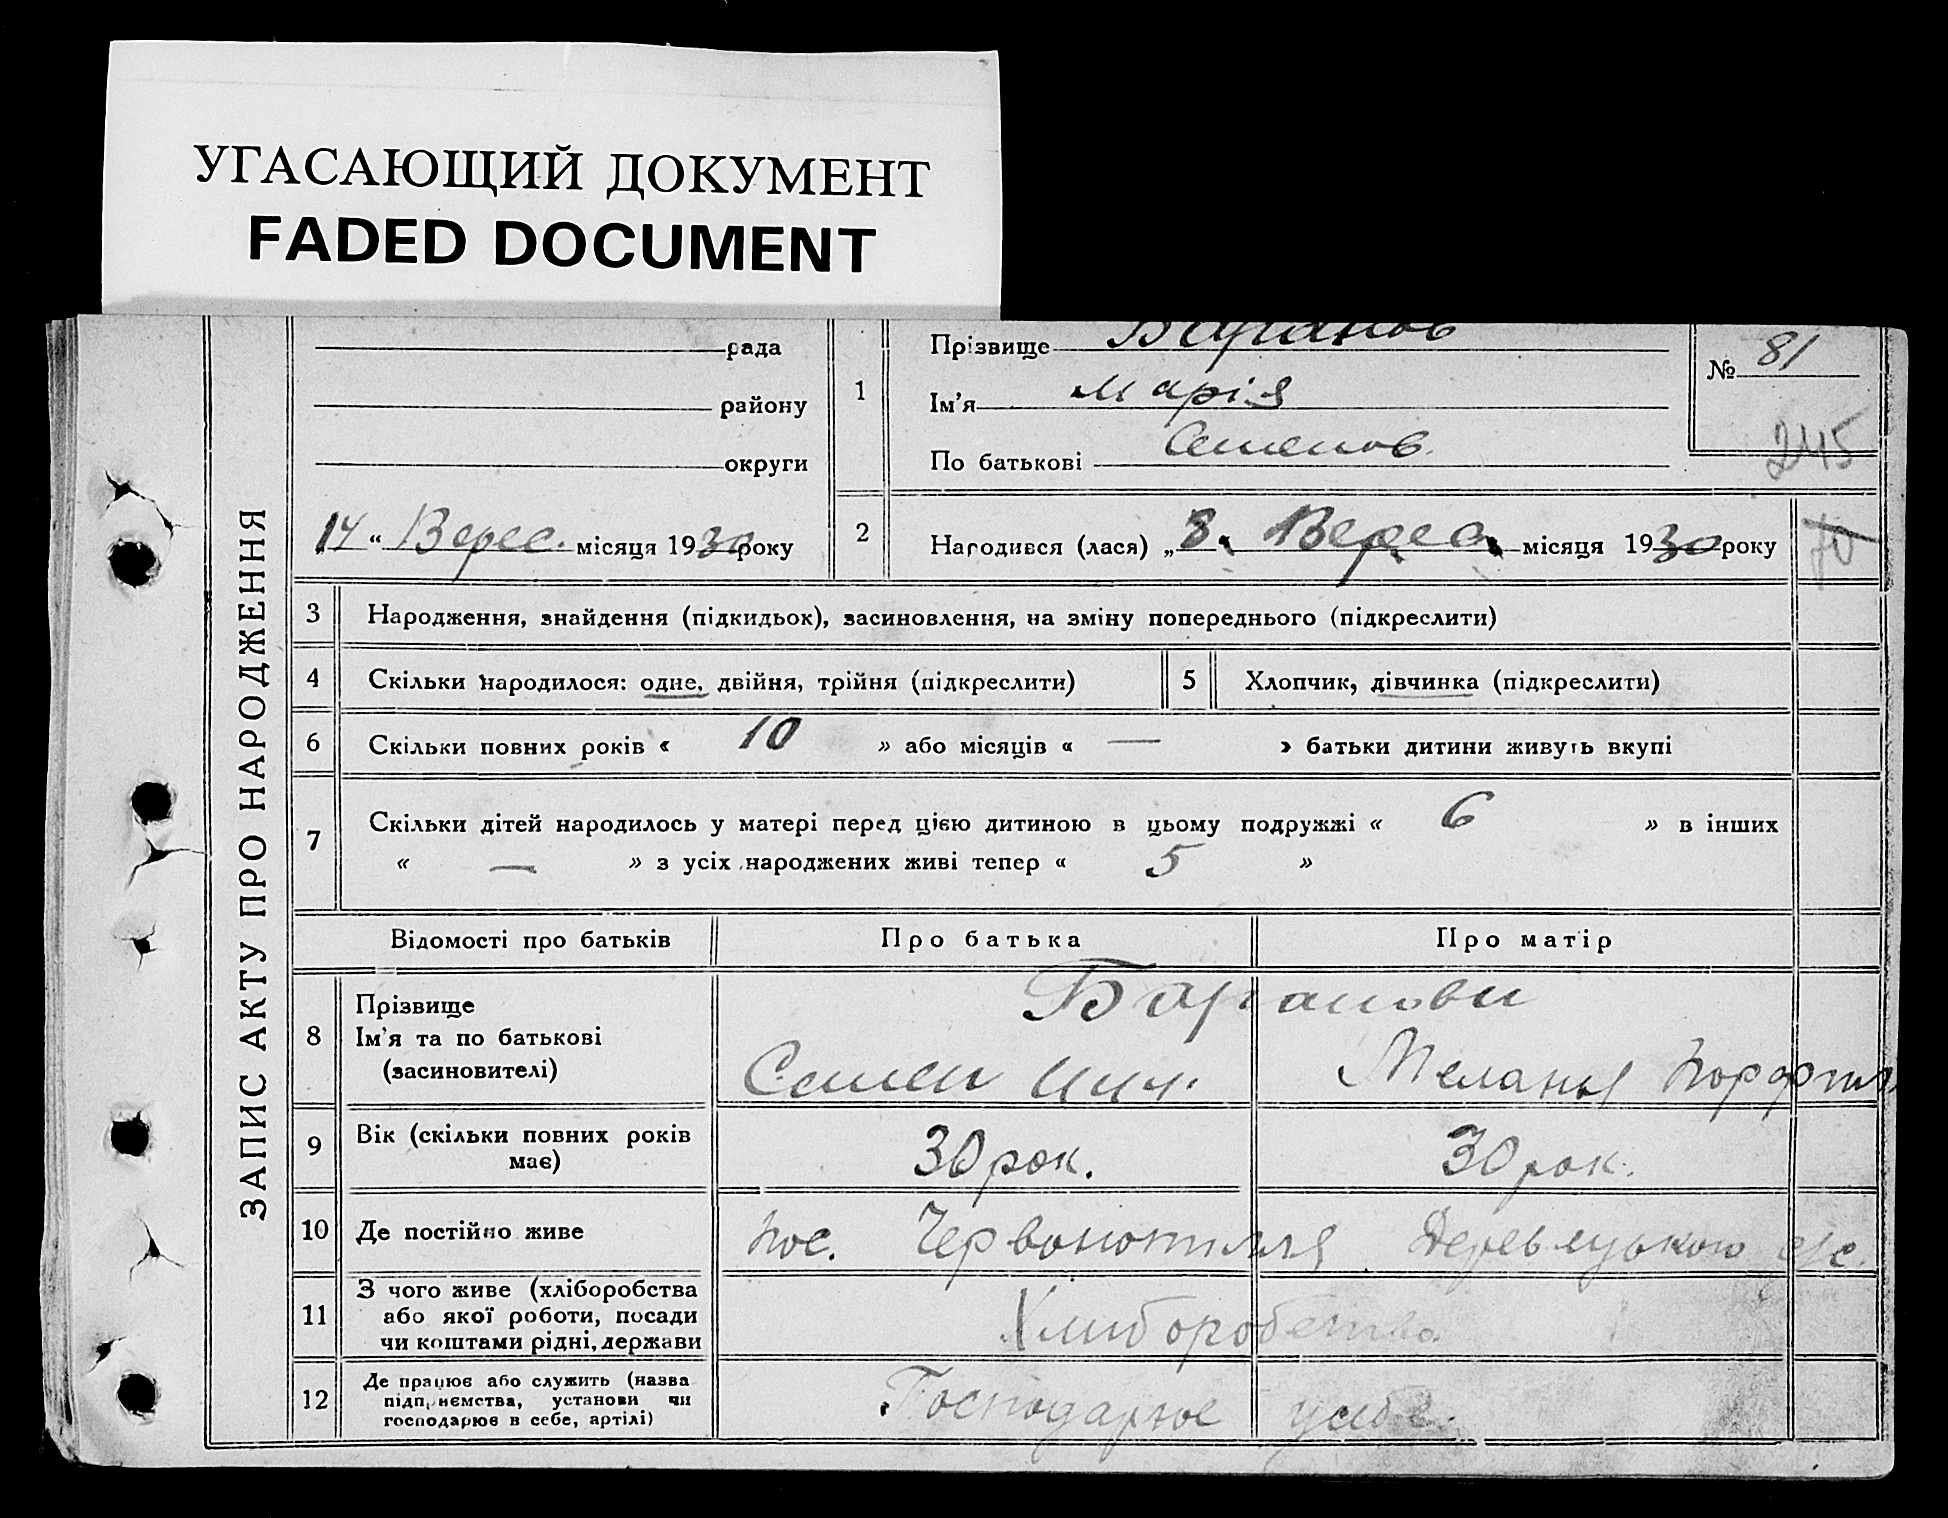 УГАСАЮЩИЙ ДОКУМЕНТ
FADED DOCUMENT
ЗАПИС АКТУ ПРО НАРОДЖЕННЯ
рада
району
округи
14 “ Верес. місяця 1930 року
1 Прізвище Баранов
Ім’я Марія
По батькові Семенов.
№ 81
245
70
2 Народився (лася) „ 8 “ Верес. місяця 1930 року
3 Народження, знайдення (підкидьок), засиновлення, на зміну попереднього (підкреслити)
4 Скільки народилося: одне, двійня, трійня (підкреслити)
5 Хлопчик, дівчинка (підкреслити)
6 Скільки повних років « 10 » або місяців « — » батьки дитини живуть вкупі
7 Скільки дітей народилось у матері перед цією дитиною в цьому подружжі « 6 » в інших
« — » з усіх народжених живі тепер « 5 »
Відомості про батьків Про батька Про матір
8 Прізвище
Ім’я та по батькові
(засиновителі)
Баранови
Семен Мелания
9 Вік (скільки повних років
має)
30 рок. 30 рок.
10 Де постійно живе пос. Червонопилля
11 З чого живе (хліборобства
або якої роботи, посади
чи коштами рідні, держави
Хлиборобство
12 Де працює або служить (назва
підприємства, установи чи
господарює в себе, артілі)
Господарює у себе.